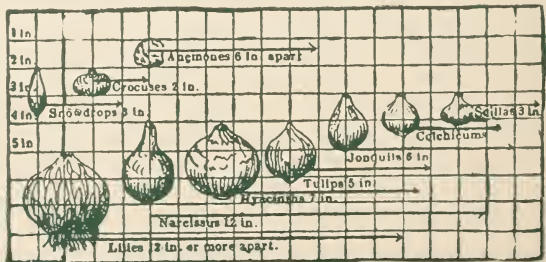 1 in
2 in
3 in
4 in
5 in
Anemones 6 in apart
Crocuses 2 in.
Snowdrops 3 in.
Scillas 3 in.
Colchicums
Jonquils 6 in
Tulips 5 in.
Hyacinths 7 in.
Narcissus 12 in.
Lilies 12 in. or more apart.